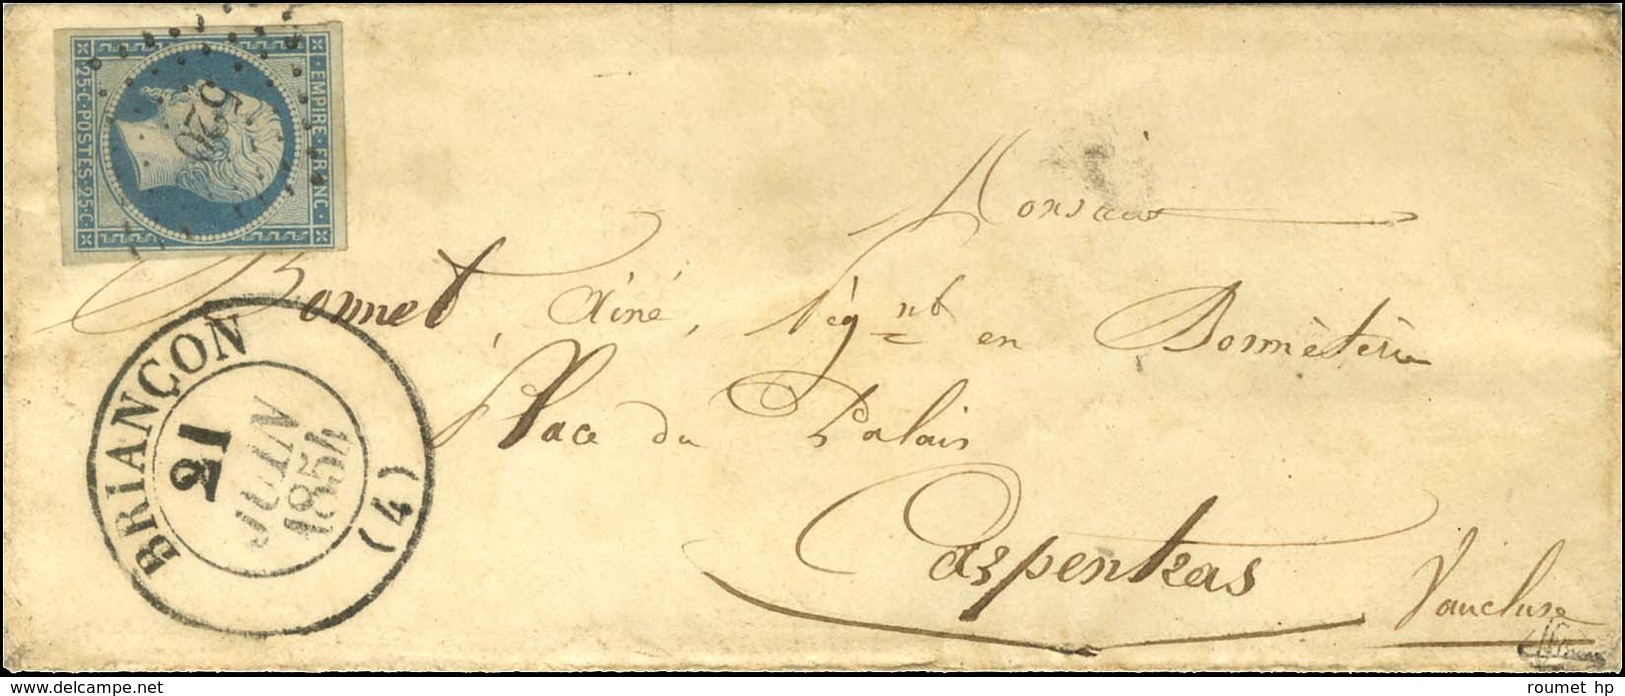 EMPIRE FRANC
25·C·POSTES·25·C
520
Monsieur
Bonnet, Ainé, Nég.nt en Bonnèterie
Place du Palais
Carpentras
Vaucluse
BRIANÇON
21
JUIN
1854
(4)
www.delcampe.net
roumet hp